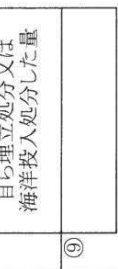 自ら埋立処分又は
海洋投入処分した量
⑨